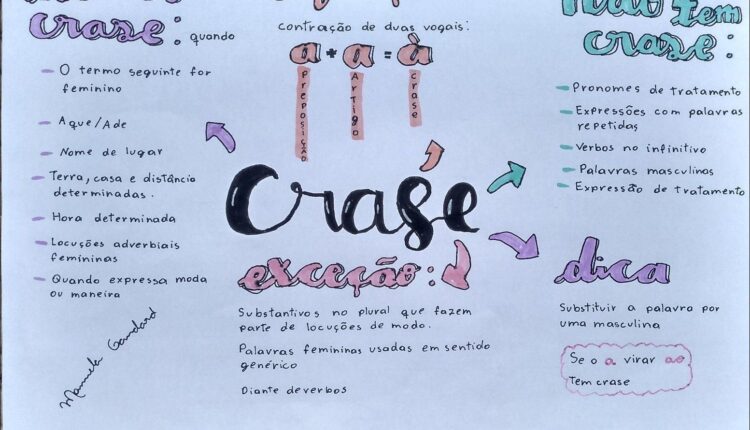 crase: quando
O termo seguinte for
feminino
Aque/Ade
Nome de lugar
Terra, casa e distância
determinadas.
Hora determinada
Locuções adverbiais
femininas
Quando expressa moda
ou maneira
contração de duas vogais:
a + a = à
preposição
Artigo
crase
Crase
exceção:
Substantivos no plural que fazem
parte de locuções de modo.
Palavras femininas usadas em sentido
genérico
Diante deverbos
tem
crase:
Pronomes de tratamento
Expressões com palavras
repetidas
Verbos no infinitivo
Palavras masculinas
Expressão de tratamento
dica
Substituir a palavra por
uma masculina
Se o a virar ao
Tem crase